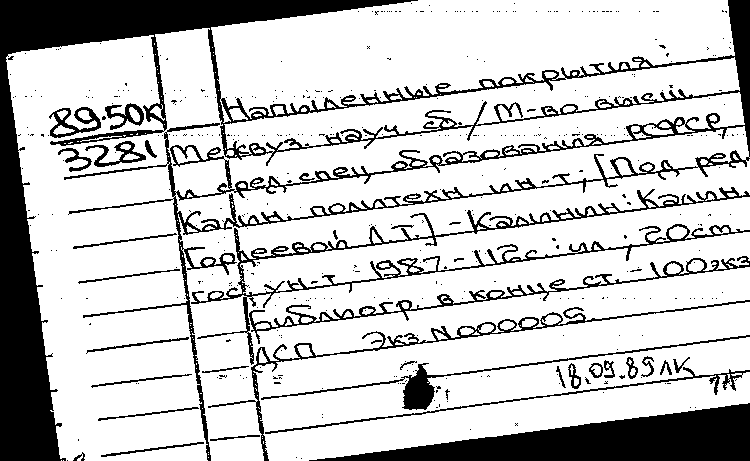 89-50к
3281
Напыленные покрытия:
Межвуз. науч. сб. / М-во высш.
и сред. спец. образования РСФСР,
Калин. политехн. ин-т; [Под ред.
Гордеевой Л.Т.] - Калинин: Калин.
гос. ун-т, 1987. - 112с.: ил.; 20см.
Библиогр. в конце ст. - 100экз
ДСП Экз. N000009.
18.09.89 лк